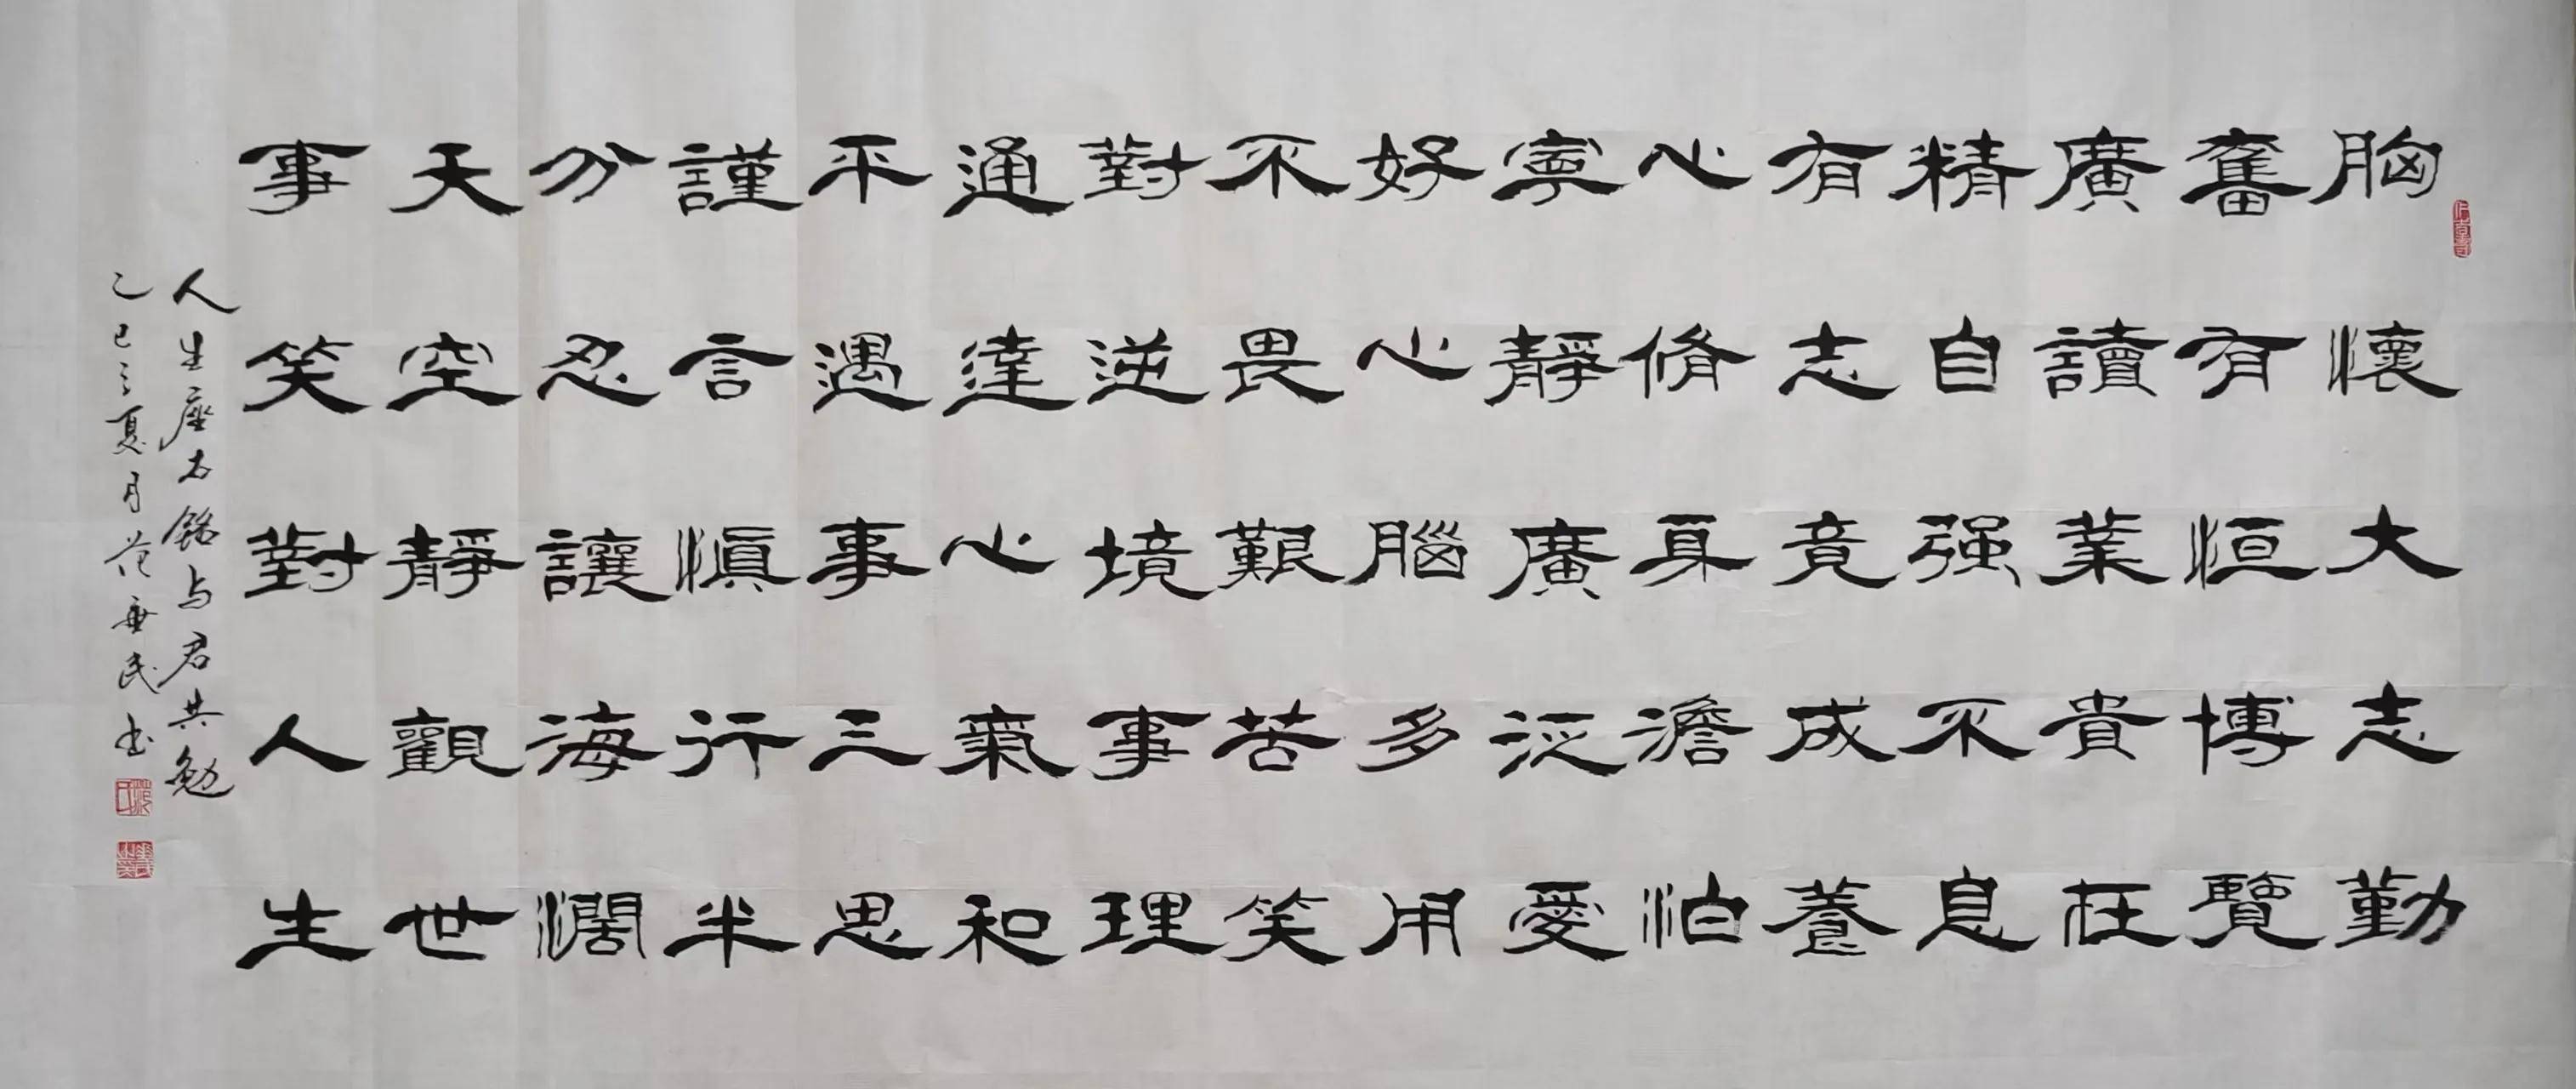 胸懷大志勤
奮有恒博覽
廣讀業貴在
精自強不息
有志竟成養
心脩身澹泊
寧靜廣泛愛
好心腦多用
不畏艱苦笑
對逆境事理
通達心氣和
平遇事三思
謹言慎行半
分忍讓海闊
天空靜觀世
事笑對人生
人生座右銘与君共勉
乙巳之夏月范垂民书